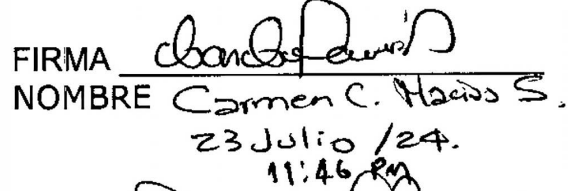 FIRMA
NOMBRE Carmen C. Macias S.
23 Julio /24.
11:46 PM